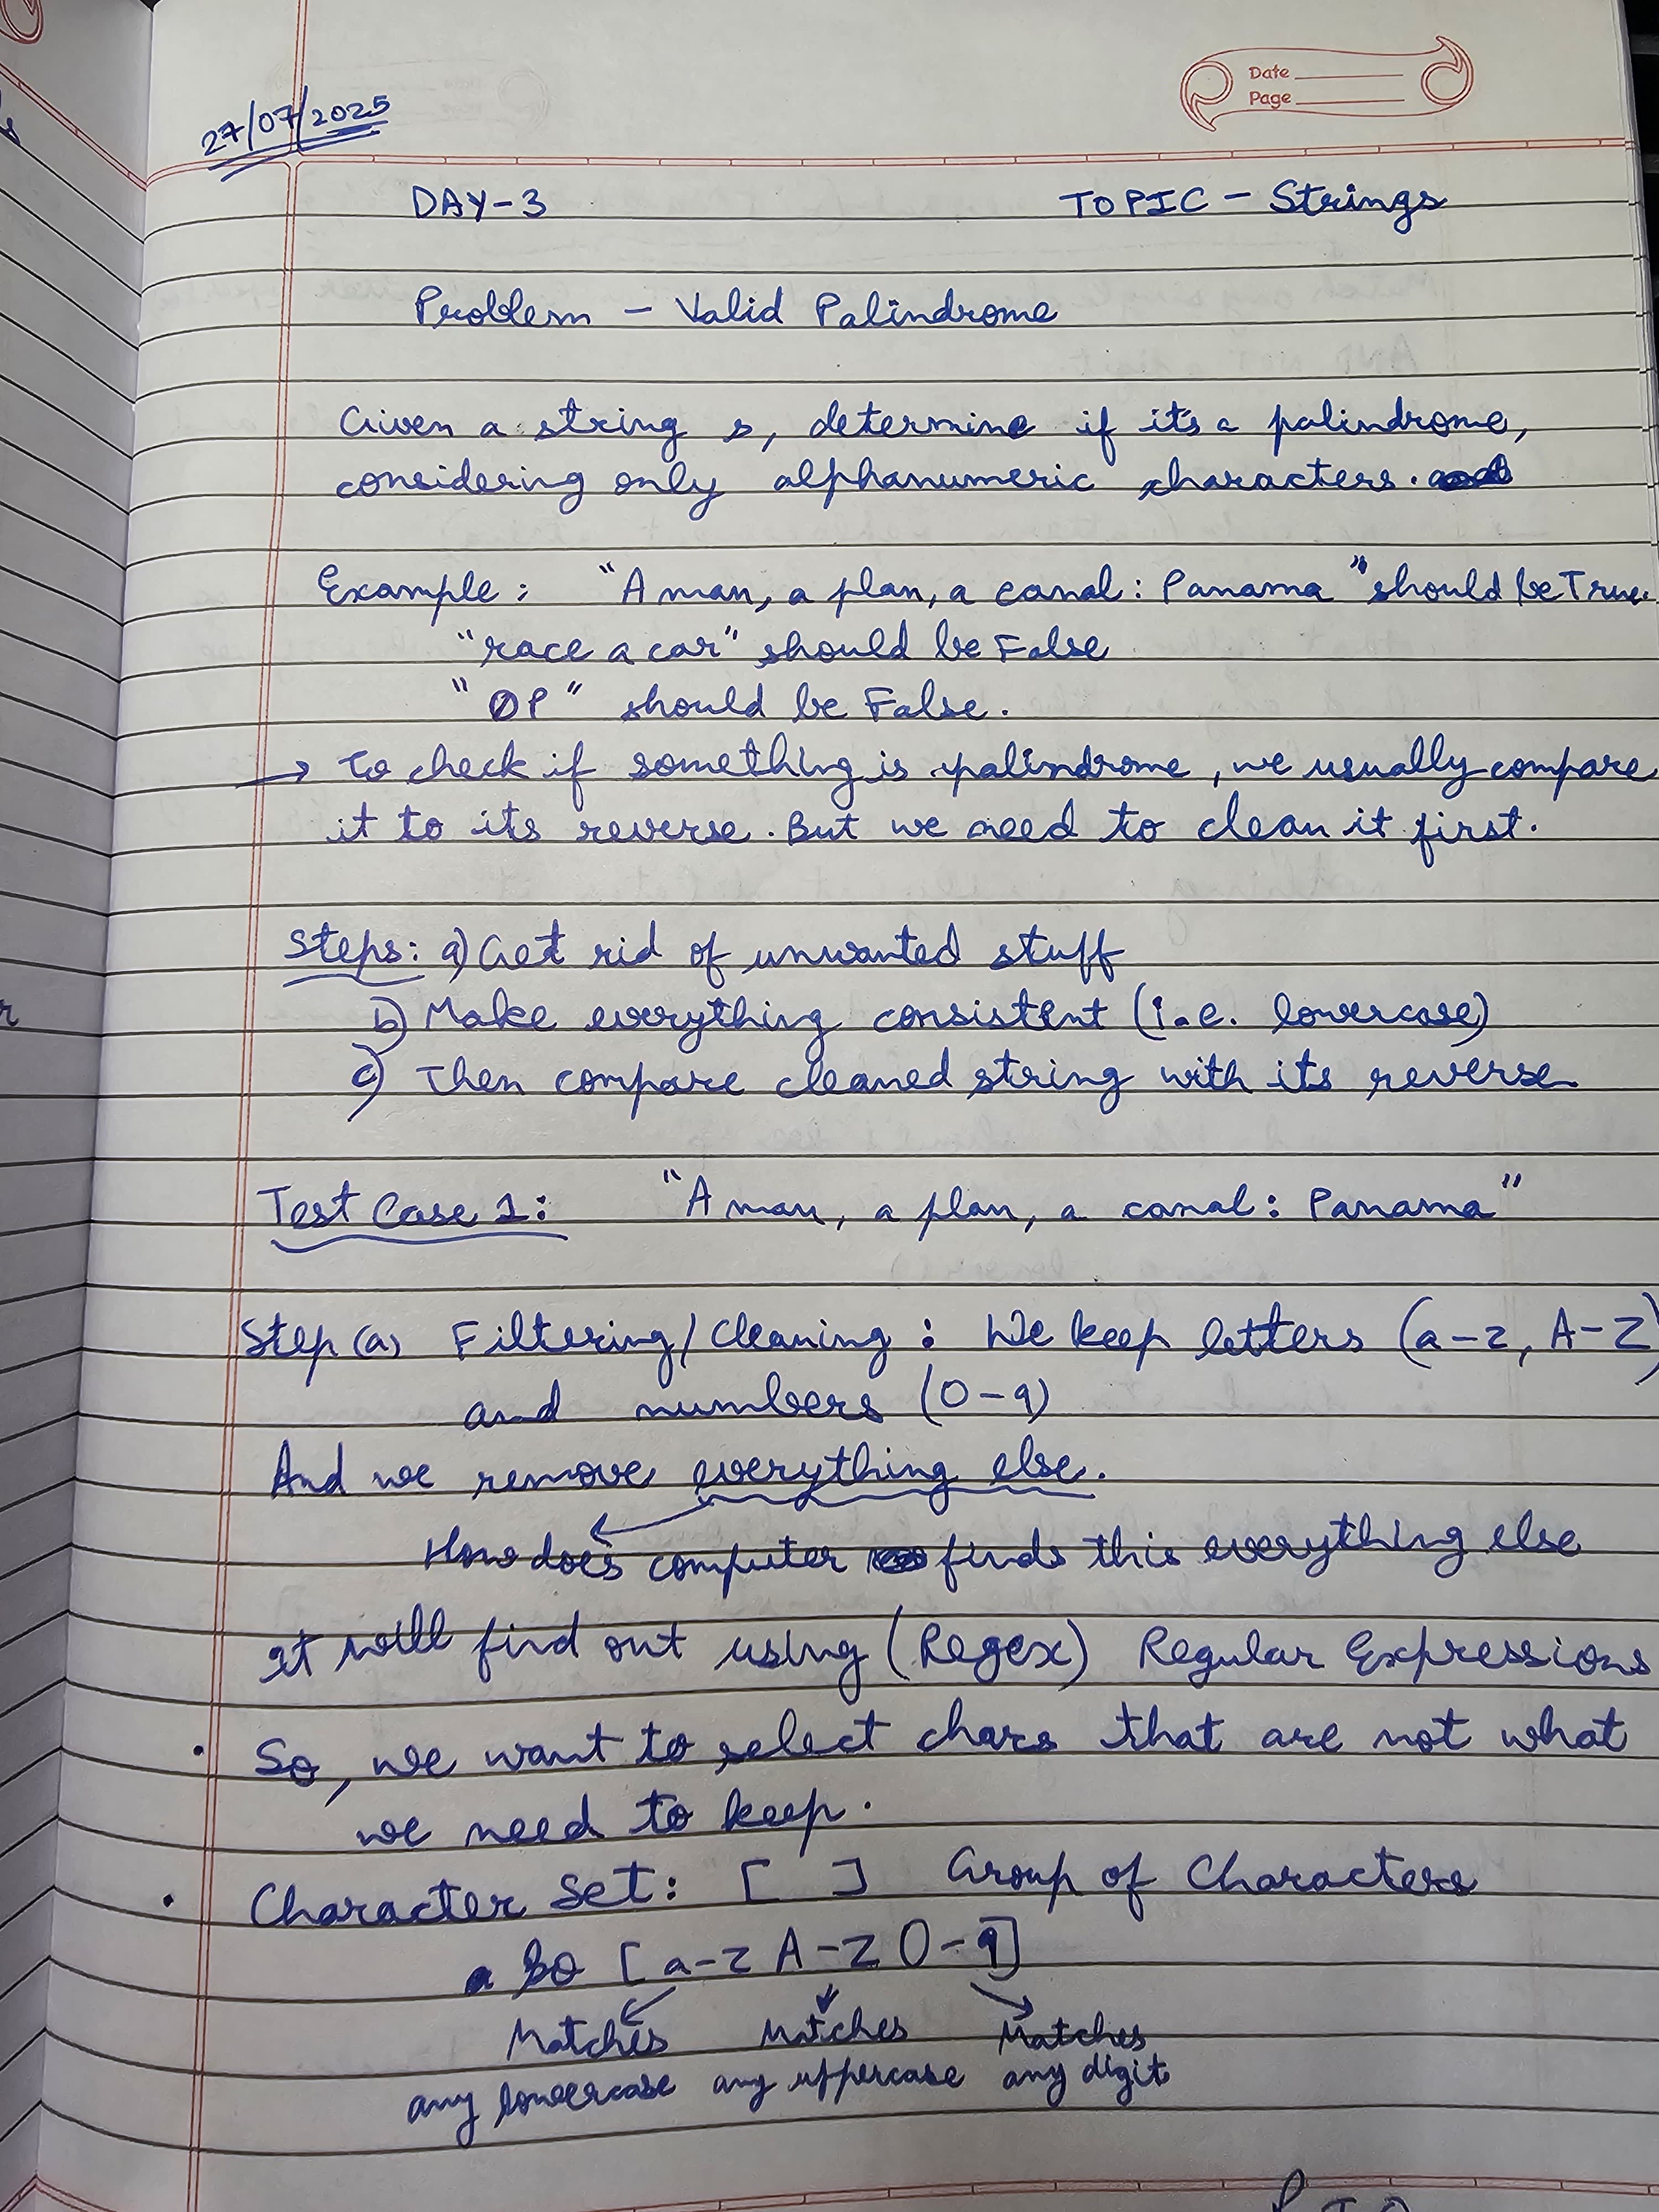 Date
Page
27/07/2025
DAY-3 TOPIC - Strings
Problem - Valid Palindrome
Given a string s, determine if it's a palindrome,
considering only alphanumeric characters.
Example: "A man, a plan, a canal: Panama" should be True.
"race a car" should be False
"0P" should be False.
→ To check if something is palindrome, we usually compare
it to its reverse. But we need to clean it first.
Steps: a) Get rid of unwanted stuff
b) Make everything consistent (i.e. lowercase)
c) Then compare cleaned string with its reverse
Test Case 1: "A man, a plan, a canal: Panama"
Step (a) Filtering/Cleaning: We keep letters (a-z, A-Z)
and numbers (0-9)
And we remove everything else.
How does computer finds this everything else
It will find out using (Regex) Regular Expressions
• So, we want to select chars that are not what
we need to keep.
• Character Set: [ ] Group of Characters
So [a-z A-Z 0-9]
Matches Matches Matches
any lowercase any uppercase any digit